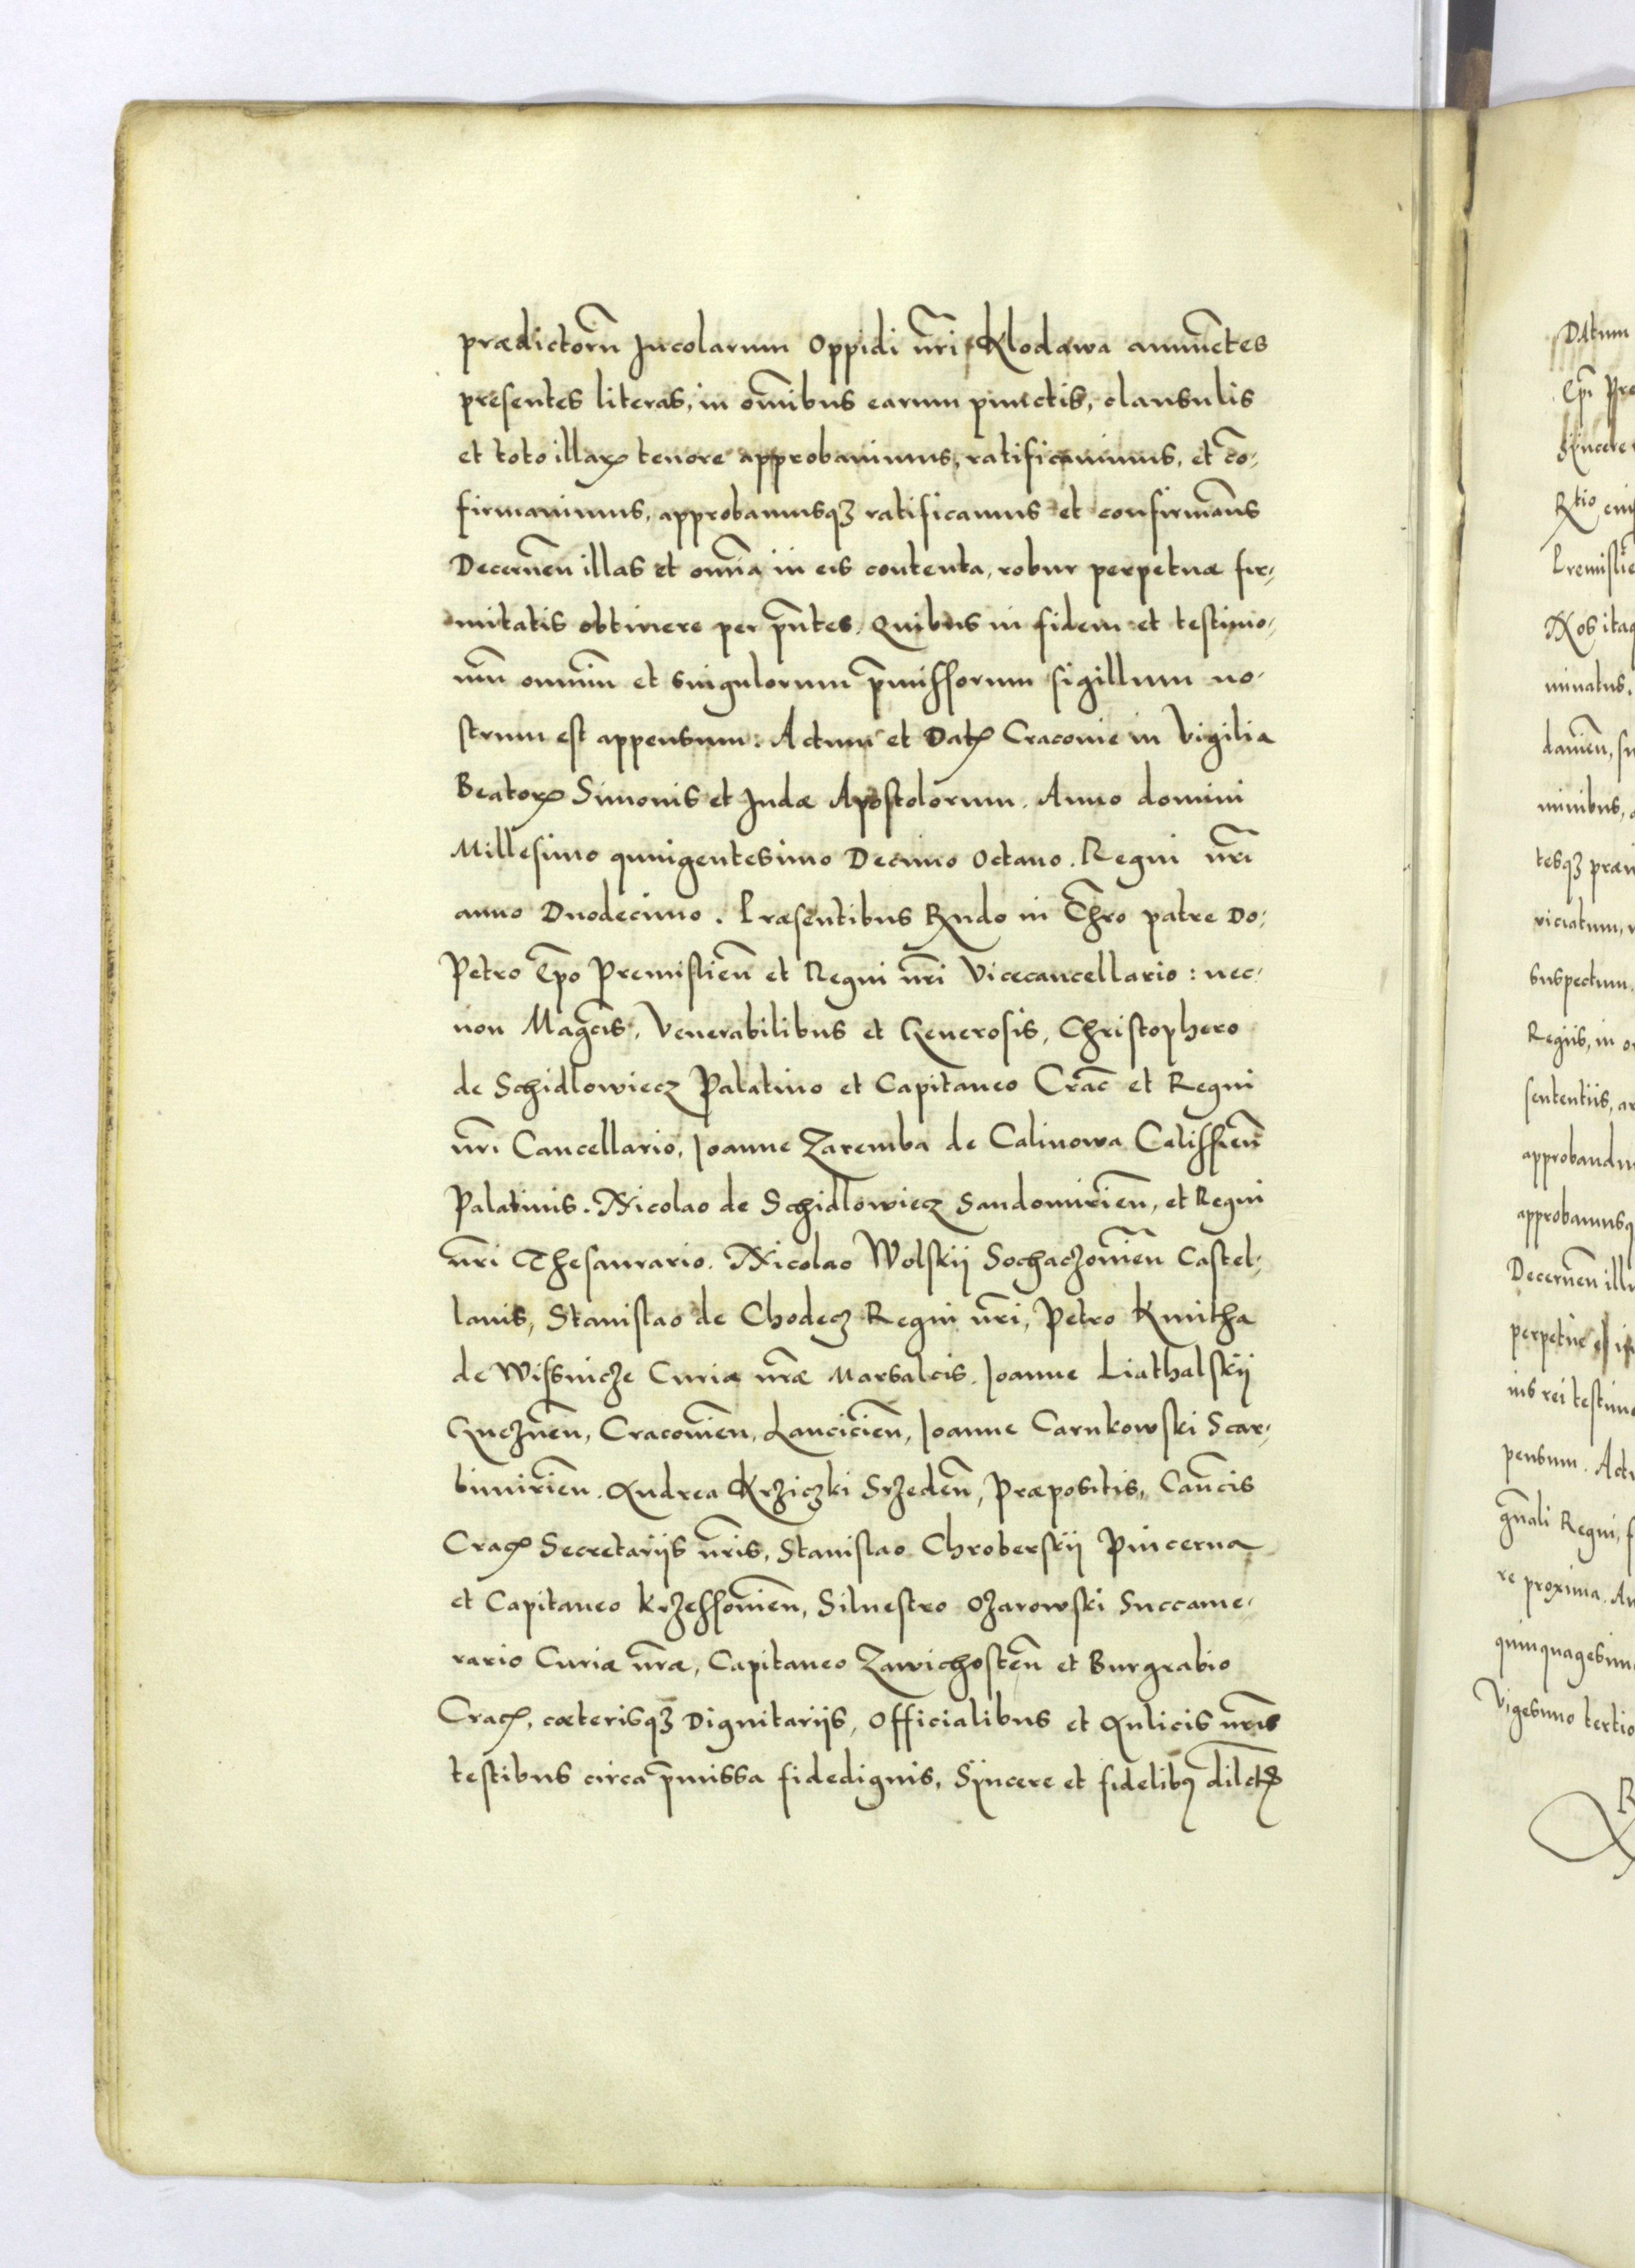 prædictorū Incolarum Oppidi nr̃i Klodawa annuẽtes
presentes literas, in om̃ibus earum punctis, clausulis
et toto illarꝝ tenore approbauimus, ratificauimus, et cō-
firmauimus, approbamusqꝫ ratificamus et confirmam̃s
Decernen̄ illas et om̃ia in eis contenta, robur perpetuæ fir-
mitatis obtinere per pñtes. Quibus in fidem et testimo-
niū omniū et singulorum p̄missorum sigillum no-
strum est appensum. Actum et Datꝭ Cracouie in Vigilia
Beatorꝝ Simonis et Iudæ Apostolorum. Anno domini
Millesimo quingentesimo Decimo Octauo. Regni nr̃i
anno Duodecimo. Præsentibus Rndo in Chr̃o patre Do:
Petro Ep̃o Premislien̄ et Regni nr̃i Vicecancellario: nec-
non Mag̃cis, Venerabilibus et Generosis, Christophero
de Schidlowiecz Palatino et Capitaneo Crac̄ et Regni
nr̃i Cancellario, Joanne Zaremba de Calinowa Calissien̄
Palatinis. Nicolao de Schidlowiecz Sandomirien̄, et Regni
nr̃i Thesaurario. Nicolao Wolskij Sochaczouien̄ Castel-
lanis, Stanislao de Chodecz Regni nr̃i, Petro Kmitha
de Wissnicze Curiæ nr̃æ Marsalcis. Joanne Liathalskij
Gneznen̄, Cracouien̄, Lancicien̄, Joanne Carnkowski Scar-
bimirien̄. Andrea Krziczki Srzeden̄, Præpositis, Can̄cis
Cracꝭ Secretarijs nr̃is, Stanislao Chroberskij Pincerna
et Capitaneo Krzessouien̄, Siluestro Ozarowski Succame-
rario Curiæ nr̃æ, Capitaneo Zawichosten̄ et Burgrabio
Cracꝭ, cæterisqꝫ Dignitarijs, Officialibus et Aulicis nr̃is
testibus circa p̄missa fidedignis, Syncere et fidelibꝰ dilctꝭ
Datum
Ep̃i
Syncere
Rtio
Nos itaq
minatus.
danien̄,
minibus,
tesqꝫ
viciatum,
suspectum.
Regiis, in
sententiis,
approbandu
approbamusq
Decernen̄ illu
perpetue
ius rei testimo
pensum. Actu
gñali Regni,
re proxima. An
quinquagesimo
Vigesimo tertio